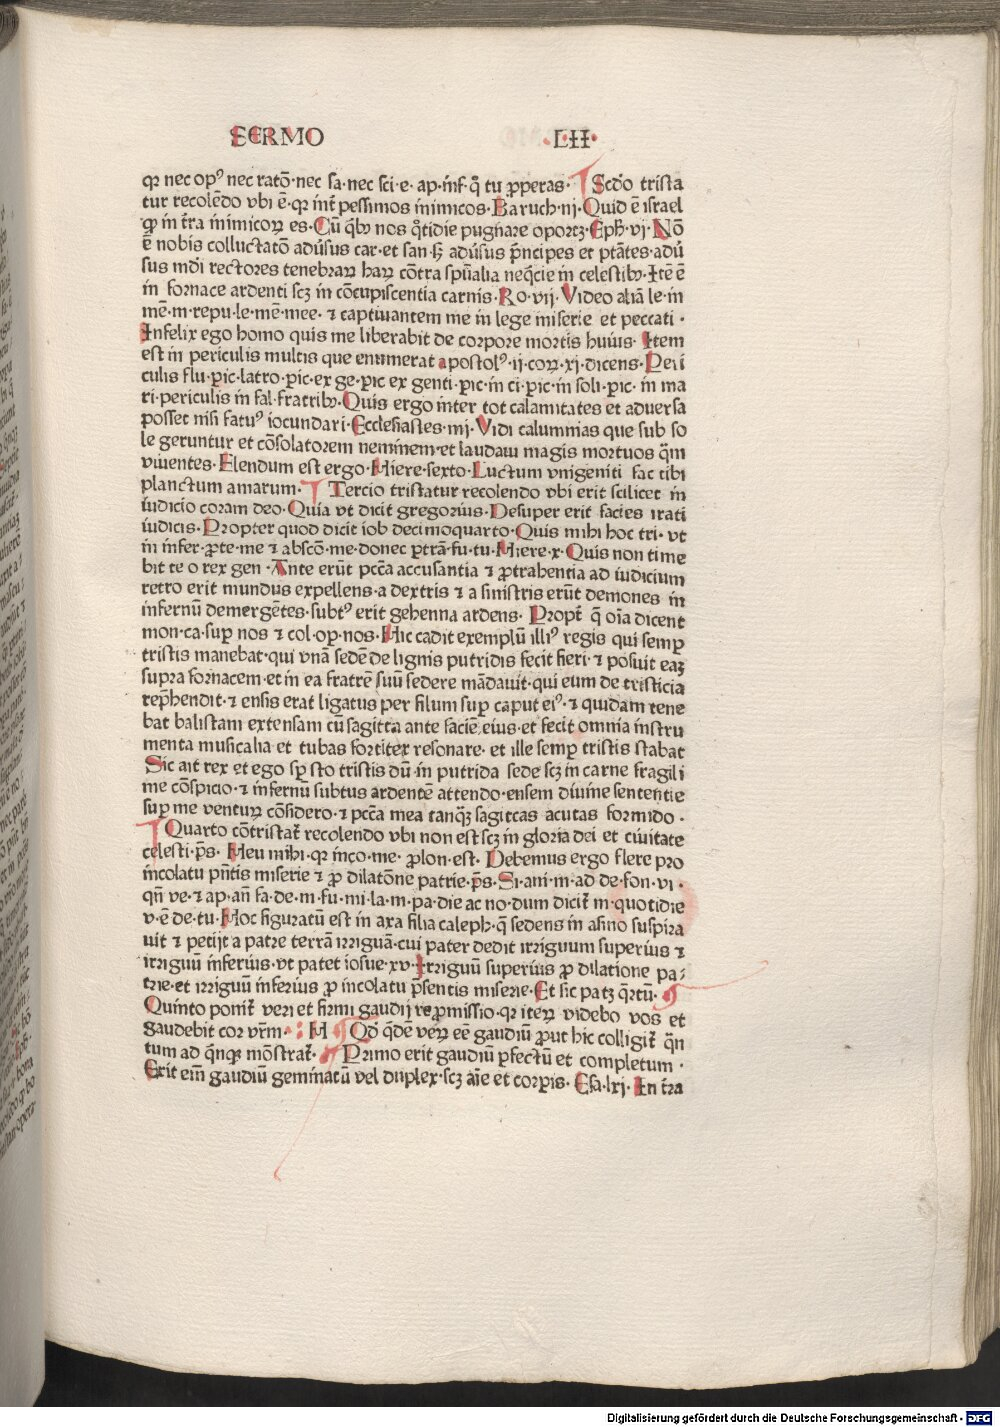 SERMO .LII.
qꝛ nec opꝰ nec ratōꝫ·nec sa·nec sci·e·ap·inf·q̄ tu ꝓperas· Scd̄o trista
tur recolēdo vbi ē·qꝛ int̄ pessimos inimicos·Baruch·iij·Quid ē israel
ꝙ in t̄ra inimicoꝝ es·Cū qͥbꝫ nos qͦtidie pugnare oportꝫ·Eph̄·vj·Nō
ē nobis colluctatō adūsus car·et san·sꝫ adūsus p̄ncipes et ptātes·adū
sus mūdi rectores tenebraꝝ haꝝ cōtra spūalia neq̄cie in celestibꝫ·Itē ē
in fornace ardenti scꝫ in cōcupiscentia carnis·Ro·vij·Video aliā le·in
mē·m·repu·le·mē·mee· ⁊ captiuantem me in lege miserie et peccati·
Infelix ego homo quis me liberabit de corpore mortis huius· Item
est in periculis multis que enumerat apostolꝰ·ij·coꝝ·xj·dicens·Peri
culis flu·pic·latro·pic·ex ge·pic ex genti·pic·in ci·pic·in soli·pic·in ma
ri·periculis in fal·fratribꝫ·Quis ergo inter tot calamitates et aduersa
posset nisi fatuꝰ iocundari·Ecclesiastes·iiij·Vidi calumnias que sub so
le geruntur et cōsolatorem neminem·et laudaui magis mortuos q̄m
viuentes·Flendum est ergo·Hiere·sexto·Luctum vnigeniti fac tibi
planctum amarum· Tercio tristatur recolendo vbi erit scilicet in
iudicio coram deo·Quia vt dicit gregorius·Desuper erit facies irati
iudicis·Propter quod dicit iob decimoquarto·Quis mihi hoc tri·vt
in infer·ꝓte·me ⁊ abscō·me·donec ptrā·fu·tu·Hiere·x·Quis non time
bit te o rex gen·Ante erūt pccā accusantia ⁊ ꝓtrahentia ad iudicium
retro erit mundus expellens·a dextris ⁊ a sinistris erūt demones in
infernū demergētes·subtꝰ erit gehenna ardens· Propt̄ q̄ oīa dicent
mon·ca·suꝑ nos ⁊ col·oꝑ·nos·Hic cadit exemplū illiꝰ regis qui semꝑ
tristis manebat·qui vnā sedē de lignis putridis fecit fieri·⁊ posuit eaꝫ
supra fornacem·et in ea fratrē suū sedere mādauit·qui eum de tristicia
rep̄hendit·⁊ ensis erat ligatus per filum suꝑ caput eiꝰ·⁊ quidam tene
bat balistam extensam cū sagitta ante faciē eius·et fecit omnia instru
menta musicalia et tubas fortiter resonare·et ille semꝑ tristis stabat
Sic ait rex et ego sꝑ sto tristis dū·in putrida sede scꝫ in carne fragili
me cōspicio·⁊ infernū subtus ardentē attendo·ensem diuine sententie
suꝑ me venturꝫ cōsidero·⁊ pccā mea tanqͣꝫ sagittas acutas formido·
Quarto cōtristat̄ recolendo vbi non est scꝫ in gloria dei et ciuitate
celesti·p̄s·Heu mihi·qꝛ inco·me·ꝓlon·est·Debemus ergo flere pro
incolatu pn̄tis miserie ⁊ ꝓ dilatōne patrie·p̄s·Si·ani·m·ad de·fon·vi·
qn̄ ve·⁊ ap·an̄ fa·de·m·fu·mi·la·m·pa·die ac no·dum dicit̄ m·quotidie
v·ē de·tu·Hoc figuratū est in axa filia caleph·q̄ sedens in asino suspira
uit ⁊ petijt a patre terrā irriguā·cui pater dedit irriguum superius ⁊
irriguū inferius·vt patet iosue·xv·Irriguū superius ꝓ dilatione pa⸗
trie·et irriguū inferius ꝓ incolatu p̄sentis miserie·Et sic patꝫ q̄rtū·
Quinto ponit̄ veri et firmi gaudij repromissio·qꝛ iteꝝ videbo vos et
gaudebit cor vr̄m· H Qd̄ q̄dē veꝝ eē gaudiū ꝓut hic colligit̄ qn̄
tum ad q̄nqꝫ mōstrat̄· Primo erit gaudiū ꝑfectū et completum·
Erit eīm gaudiū geminatū vel duplex·scꝫ aīe et corꝑis·Esa·lxj·In t̄ra
Digitalisierung gefördert durch die Deutsche Forschungsgemeinschaft - DFG